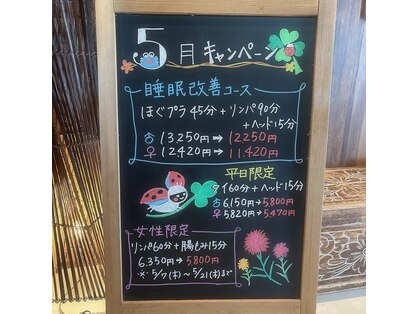 5月キャンペーン
睡眠改善コース
ほぐプラ45分+リンパ90分
+ヘッド15分
♂13250円→12250円
♀12.420円→11.420円
平日限定
タイ60分+ヘッド15分
♂6,150円→5,800円
♀5,820円→5,470円
女性限定
リンパ60分+腸もみ15分
6.350円→5,800円
※5/7(木)~5/21(木)まで